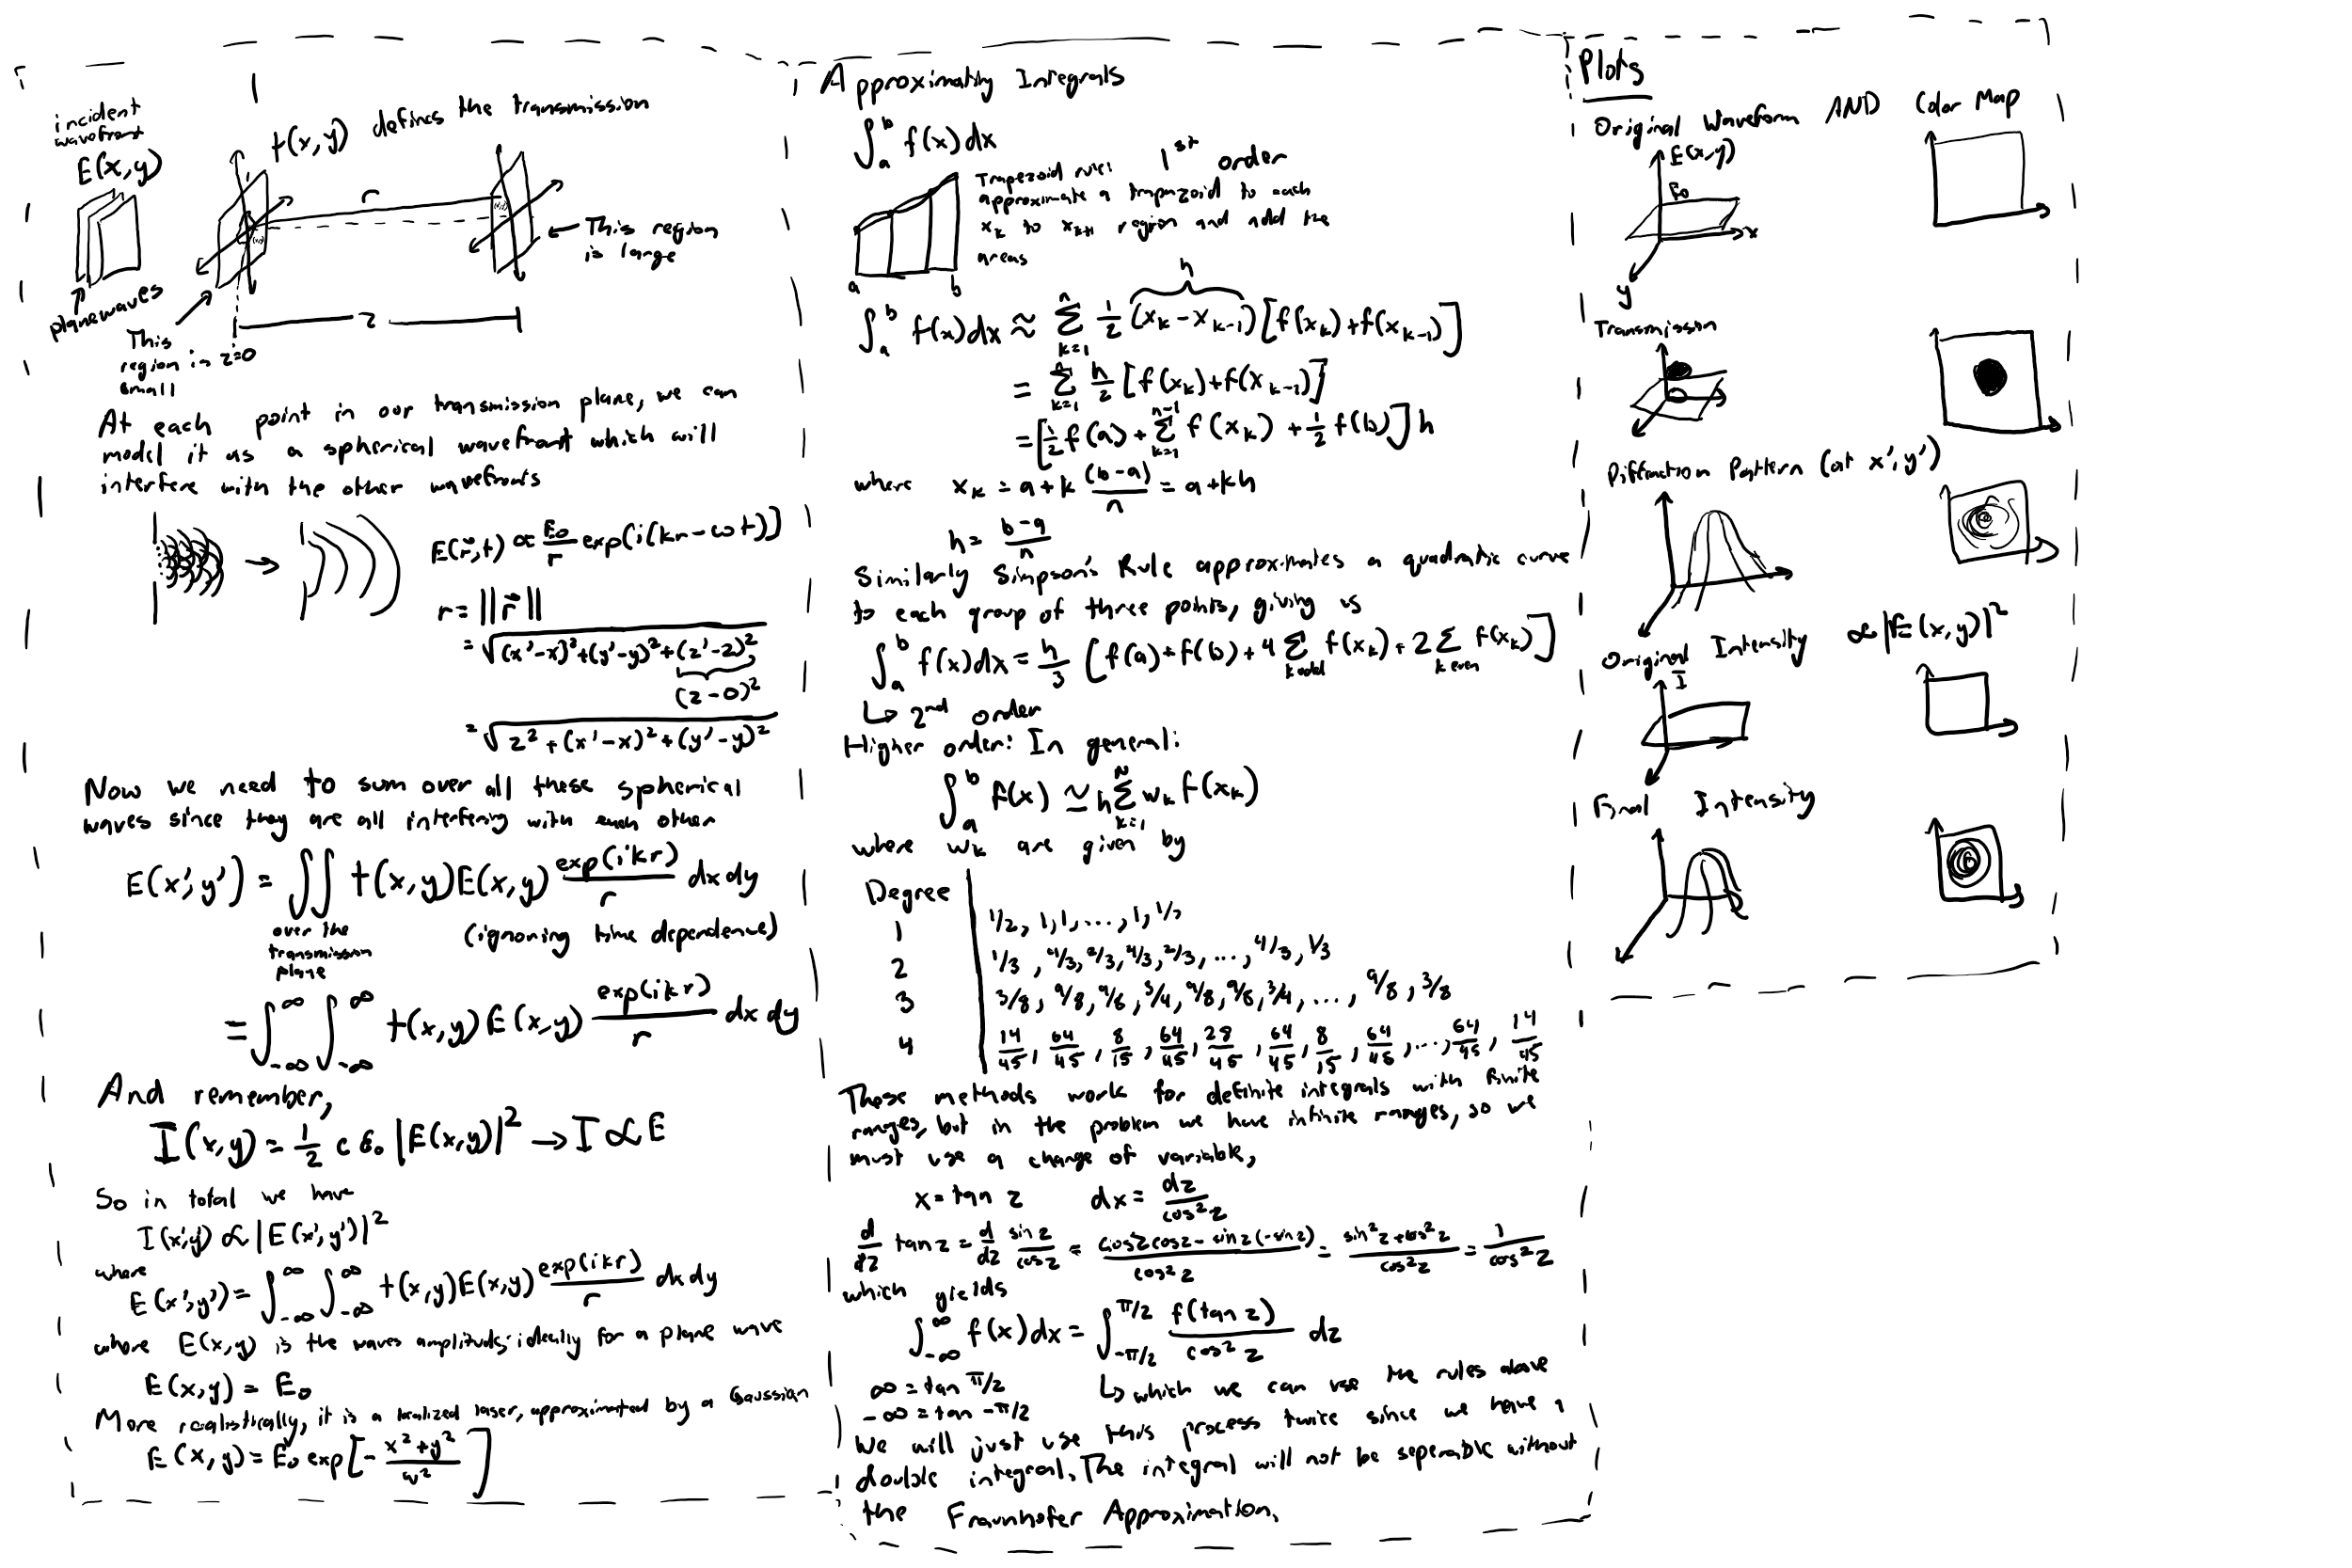 incident
wavefront
E(x,y)
t(x,y) defines the transmission
r
This region
is large
plane waves
This
region is z=0
small
z
At each point in our transmission plane, we can
model it as a spherical wavefront which will
interfere with the other wavefronts
E(r⃗,t) ∝ E₀/r exp(i(kr-ωt))
r = ||r⃗||
= √((x'-x)²+(y'-y)²+(z'-z)²)
(z-0)²
= √(z²+(x'-x)²+(y'-y)²)
Now we need to sum over all these spherical
waves since they are all interfering with each other
E(x',y') = ∬ t(x,y)E(x,y) exp(ikr)/r dx dy
over the
transmission
plane
(ignoring time dependence)
= ∫_{-∞}^{∞} ∫_{-∞}^{∞} t(x,y) E(x,y) exp(ikr)/r dx dy
And remember,
I(x,y) = 1/2 c ε₀ |E(x,y)|² → I ∝ E
So in total we have
I(x',y') ∝ |E(x',y')|²
where
E(x',y') = ∫_{-∞}^{∞} ∫_{-∞}^{∞} t(x,y)E(x,y) exp(ikr)/r dx dy
where E(x,y) is the waves amplitude; ideally for a plane wave
E(x,y) = E₀
More realistically, it is a localized laser, approximated by a Gaussian
E(x,y) = E₀ exp[-(x²+y²)/w²]
Approximating Integrals
∫_a^b f(x)dx
Trapezoid rule: 1st order
approximate a trapezoid to each
x_k to x_{k+1} region and add the
areas
a b
h
∫_a^b f(x)dx ≈ Σ_{k=1}^{n} 1/2 (x_k - x_{k-1}) [f(x_k)+f(x_{k-1})]
= Σ_{k=1}^{n} h/2 [f(x_k)+f(x_{k-1})]
= [1/2 f(a) + Σ_{k=1}^{n-1} f(x_k) + 1/2 f(b)] h
where x_k = a+k (b-a)/n = a+kh
h = (b-a)/n
Similarly Simpson's Rule approximates a quadratic curve
to each group of three points, giving us
∫_a^b f(x)dx = h/3 [f(a)+f(b)+4 Σ_{k odd} f(x_k)+2 Σ_{k even} f(x_k)]
↳ 2nd order
Higher order: In general:
∫_a^b f(x) ≃ h Σ_{k=1}^{N} w_k f(x_k)
where w_k are given by
Degree
1 1/2, 1, 1, ..., 1, 1/2
2 1/3, 4/3, 2/3, 4/3, 2/3, ..., 4/3, 1/3
3 3/8, 9/8, 9/8, 3/4, 9/8, 9/8, 3/4, ..., 9/8, 3/8
4 14/45, 64/45, 8/15, 64/45, 28/45, 64/45, 8/15, 64/45, ..., 64/45, 14/45
These methods work for definite integrals with finite
ranges, but in the problem we have infinite ranges, so we
must use a change of variable,
x = tan z dx = dz/cos² z
d/dz tan z = d/dz sin z/cos z = (cos z cos z - sin z(-sin z))/cos² z = (sin² z + cos² z)/cos² z = 1/cos² z
which yields
∫_{-∞}^{∞} f(x)dx = ∫_{-π/2}^{π/2} f(tan z)/cos² z dz
∞ = tan π/2 ↳ which we can use the rules above
-∞ = tan -π/2
We will just use this process twice since we have a
double integral. The integral will not be seperable without
the Fraunhofer Approximation.
Plots
Original Waveform AND Color Map
E(x,y)
E₀
x
y
Transmission
Diffraction Pattern (at x',y')
Original Intensity ∝ |E(x,y)|²
I
Final Intensity